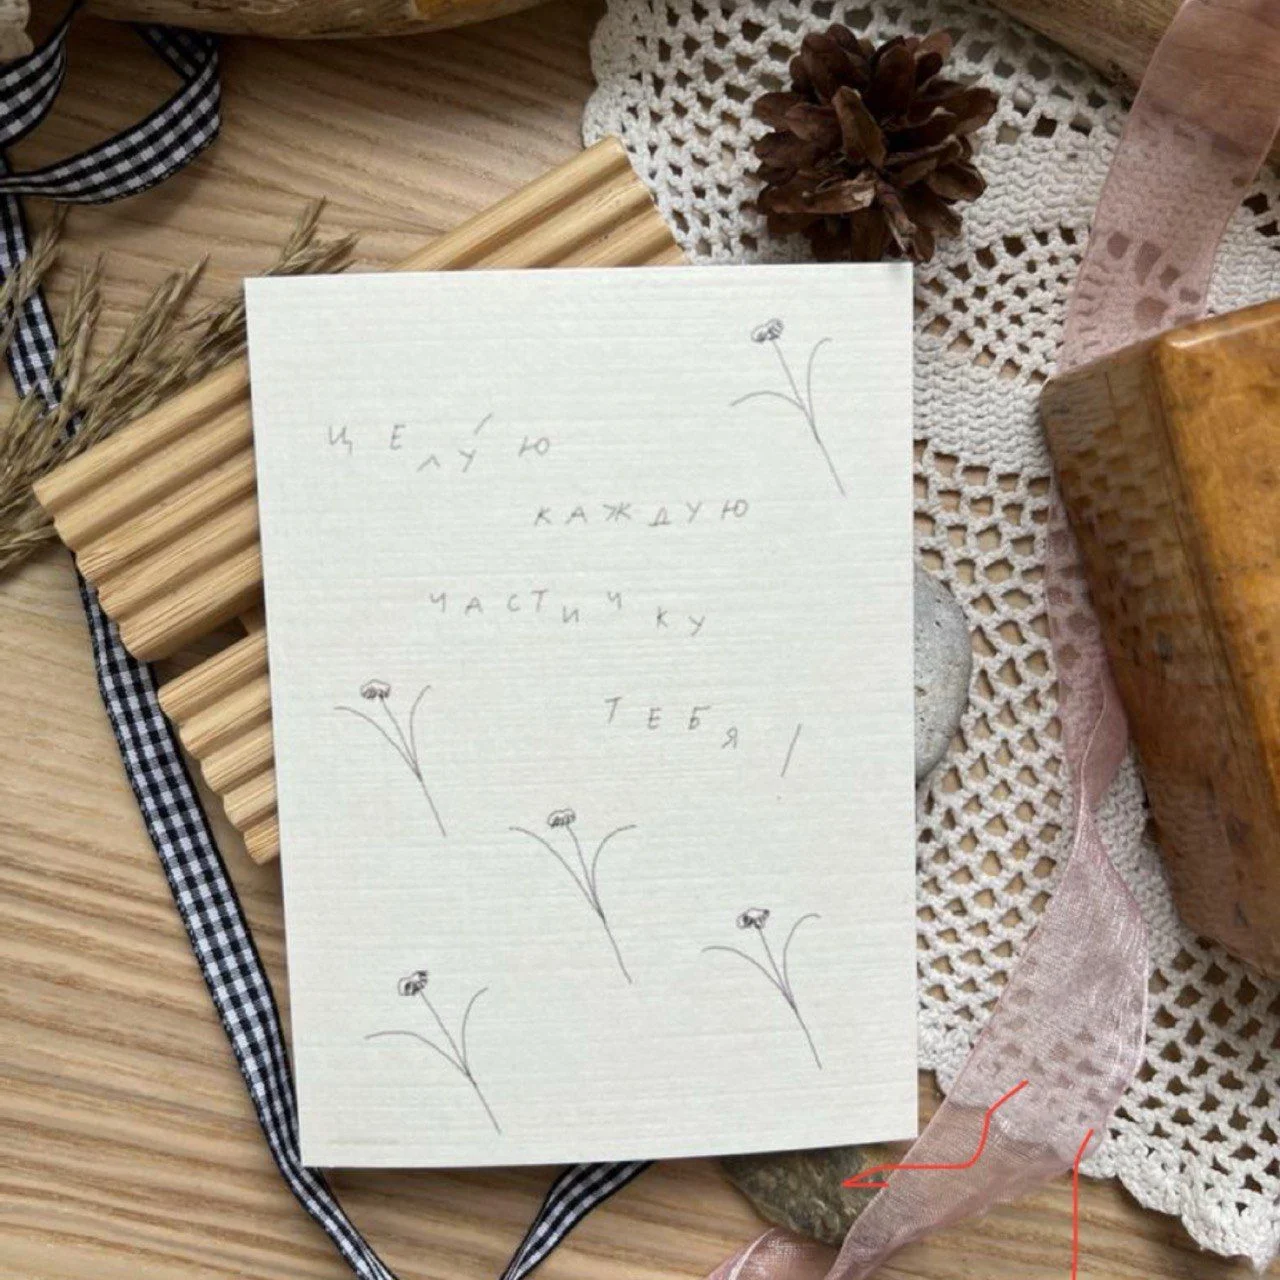 ЦЕЛУ́Ю
КАЖДУЮ
ЧАСТИЧКУ
ТЕБЯ!